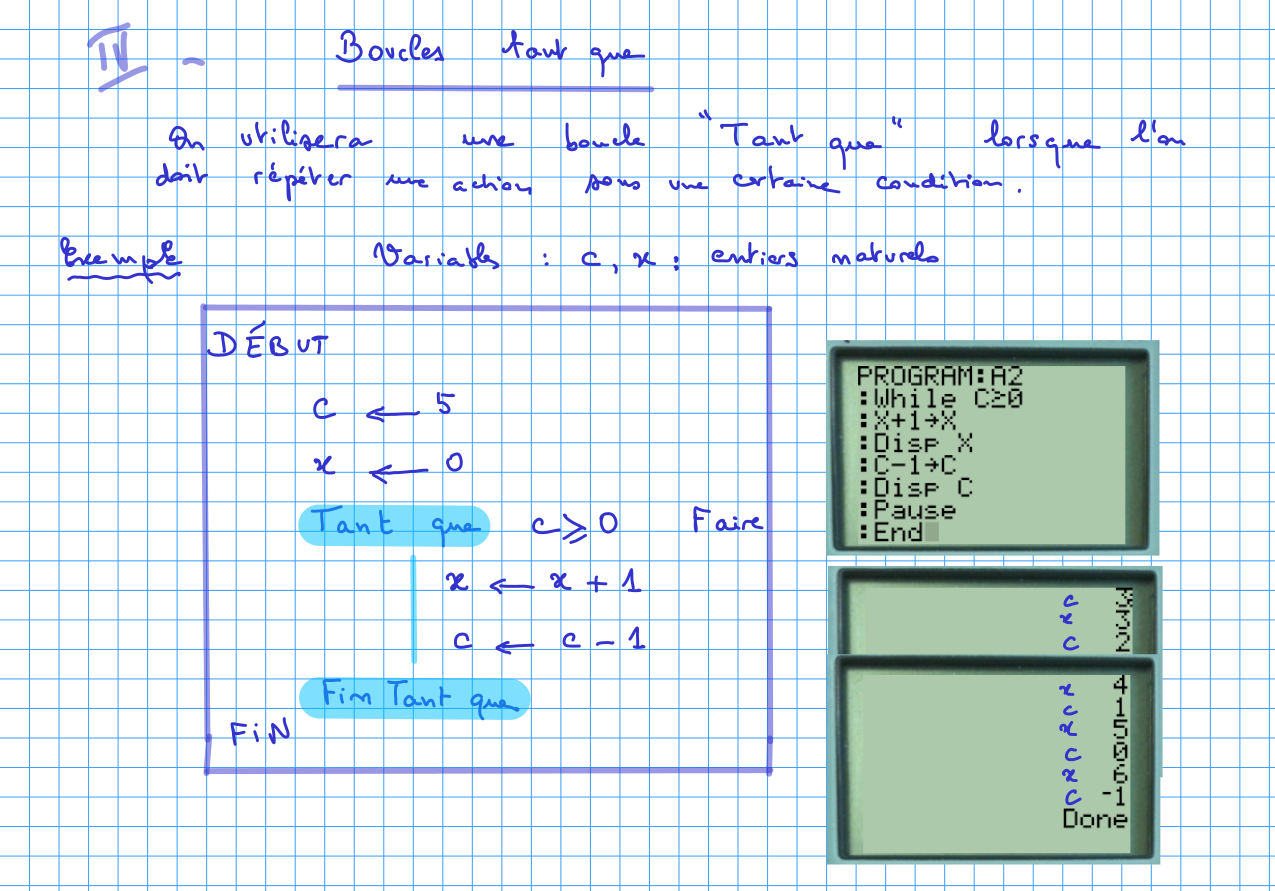 IV - Boucles tant que
On utilisera une boucle "Tant que" lorsque l'on
doit répéter une action sous une certaine condition.
Exemple Variables : c, x : entiers naturels
DÉBUT
c ← 5
x ← 0
Tant que c ⩾ 0 Faire
x ← x + 1
c ← c - 1
Fin Tant que
FiN
PROGRAM:A2
:While C≥0
:X+1→X
:Disp X
:C-1→C
:Disp C
:Pause
:End
c 3
x 3
c 2
x 4
c 1
x 5
c 0
x 6
c -1
Done